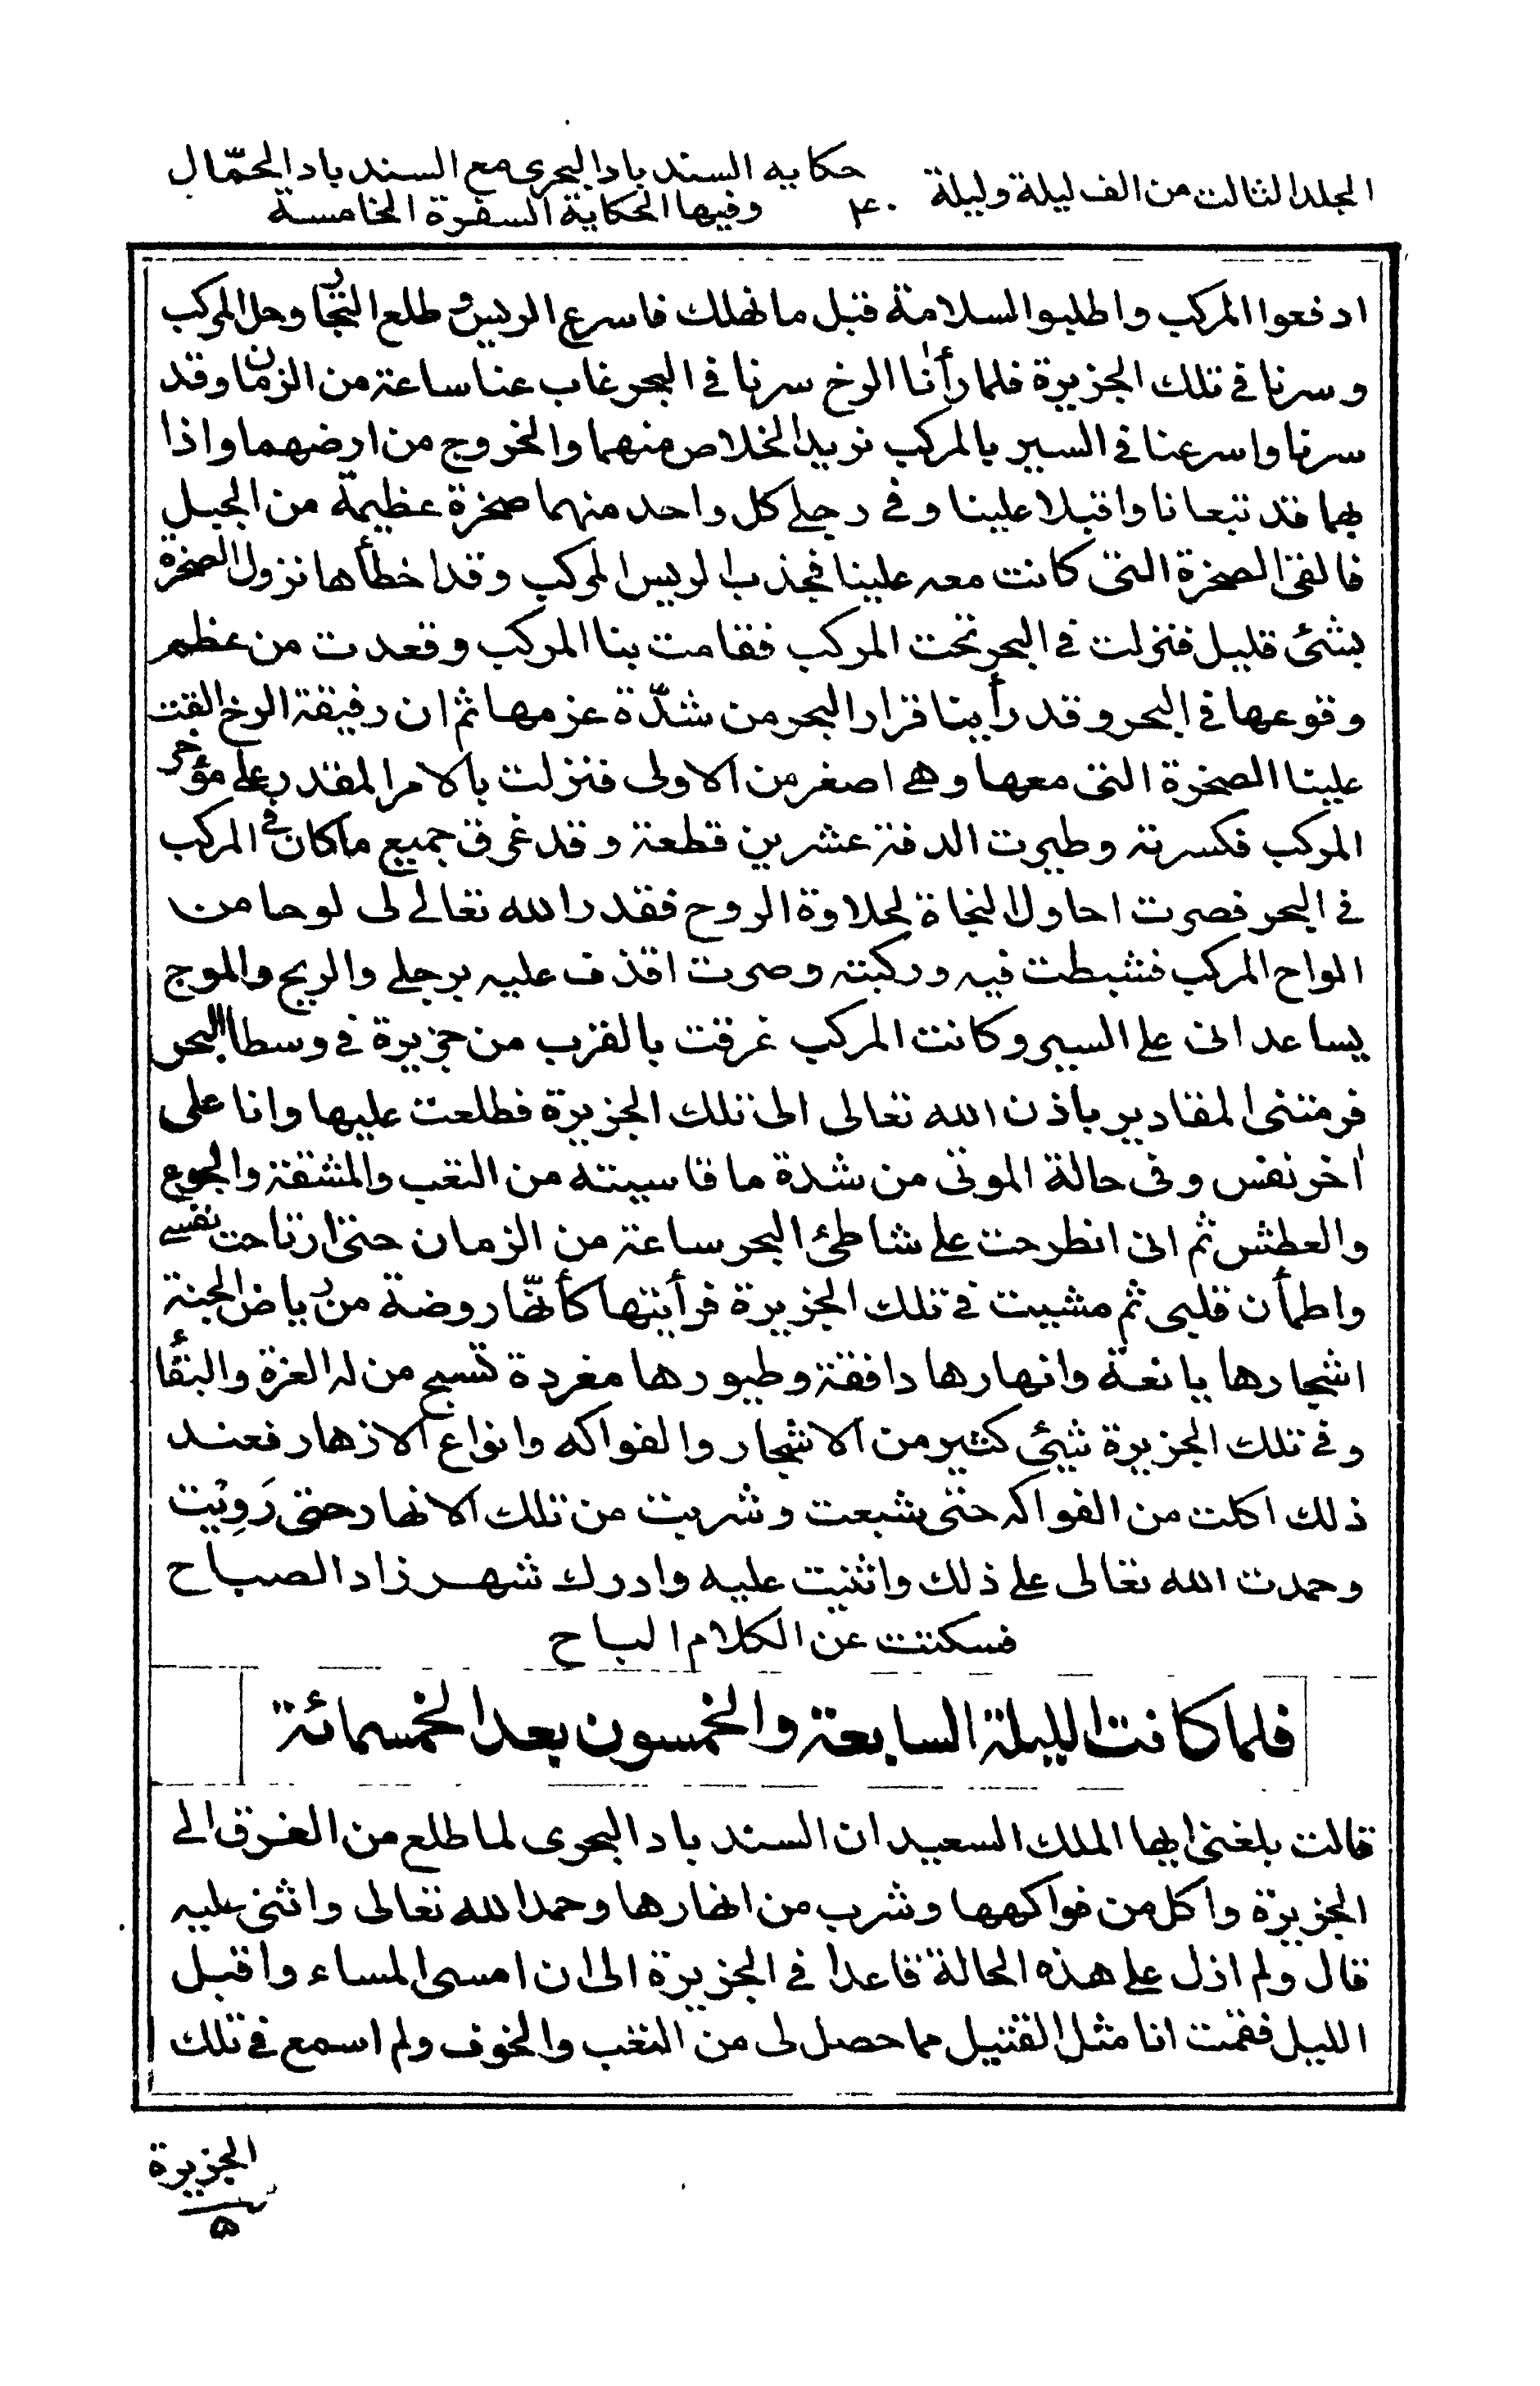 المجلد الثالث من الف ليلة وليلة ٤٠ حكايه السند باد البحرى مع السند باد الحمّال
وفيها الحكاية السفرة الخامسة
ادفعوا المركب واطلبوا السلامة قبل ما نهلك فاسرع الريس و طلع التجار وحل المركب
وسرنا فى تلك الجزيرة فلما رأنا الرخ سرنا فى البحر غاب عنا ساعة من الزمان وقد
سرنا واسرعنا فى السير بالمركب نريد الخلاص منهما والخروج من ارضهما واذا
بهما قد تبعانا واقبلا علينا وفى رجلے كل واحد منهما صخرة عظيمة من الجبل
فالقى الصخرة التى كانت معه علينا فجذب الريس المركب وقد اخطأها نزول الصخرة
بشئ قليل فنزلت فى البحر تحت المركب فقامت بنا المركب وقعدت من عظم
وقوعها فى البحر وقد رأينا قرار البحر من شدّة عزمها ثم ان رفيقة الرخ القت
علينا الصخرة التى معها وهے اصغر من الاولى فنزلت بالامر المقدر علے مؤخر
المركب فكسرته وطيرت الدفة عشرين قطعة وقد غرق جميع ماكان فى المركب
فى البحر فصرت احاول النجاة لحلاوة الروح فقدر الله تعالے لى لوحا من
الواح المركب فشبطت فيه وركبته وصرت اقذف عليه برجلے والريح والموج
يساعدانى علے السير وكانت المركب غرقت بالقرب من جزيرة فى وسط البحر
فرمتنى المقادير باذن الله تعالى الى تلك الجزيرة فطلعت عليها وانا على
اٰخر نفس وفى حالة الموتى من شدة ما قاسيته من التعب والمشقة والجوع
والعطش ثم انى انطرحت علے شاطئ البحر ساعة من الزمان حتى ارتاحت نفسے
واطمأن قلبى ثم مشيت فى تلك الجزيرة فرأيتها كأنهّا روضة من رياض الجنة
اشجارها يانعة وانهارها دافقة وطيورها مغردة تسبح من له العزة والبقأ
وفى تلك الجزيرة شيئ كثير من الاشجار والفواكه وانواع الازهار فعند
ذلك اكلت من الفواكه حتى شبعت وشربت من تلك الانهار حتى رَوِيْت
وحمدت الله تعالى علے ذلك واثنيت عليه وادرك شهرزاد الصباح
فسكتت عن الكلام المباح
فلما كانت الليلة السابعة والخمسون بعد الخمسمائة
قالت بلغنى ايها الملك السعيد ان السند باد البحرى لما طلع من الغرق الے
الجزيرة واكل من فواكهها وشرب من انهارها وحمد الله تعالى واثنى عليه
قال ولم ازل علے هذه الحالة قاعدا فى الجزيرة الى ان امسى المساء واقبل
الليل فقمت انا مثل القتيل مما حصل لى من التعب والخوف ولم اسمع فى تلك
الجزيرة